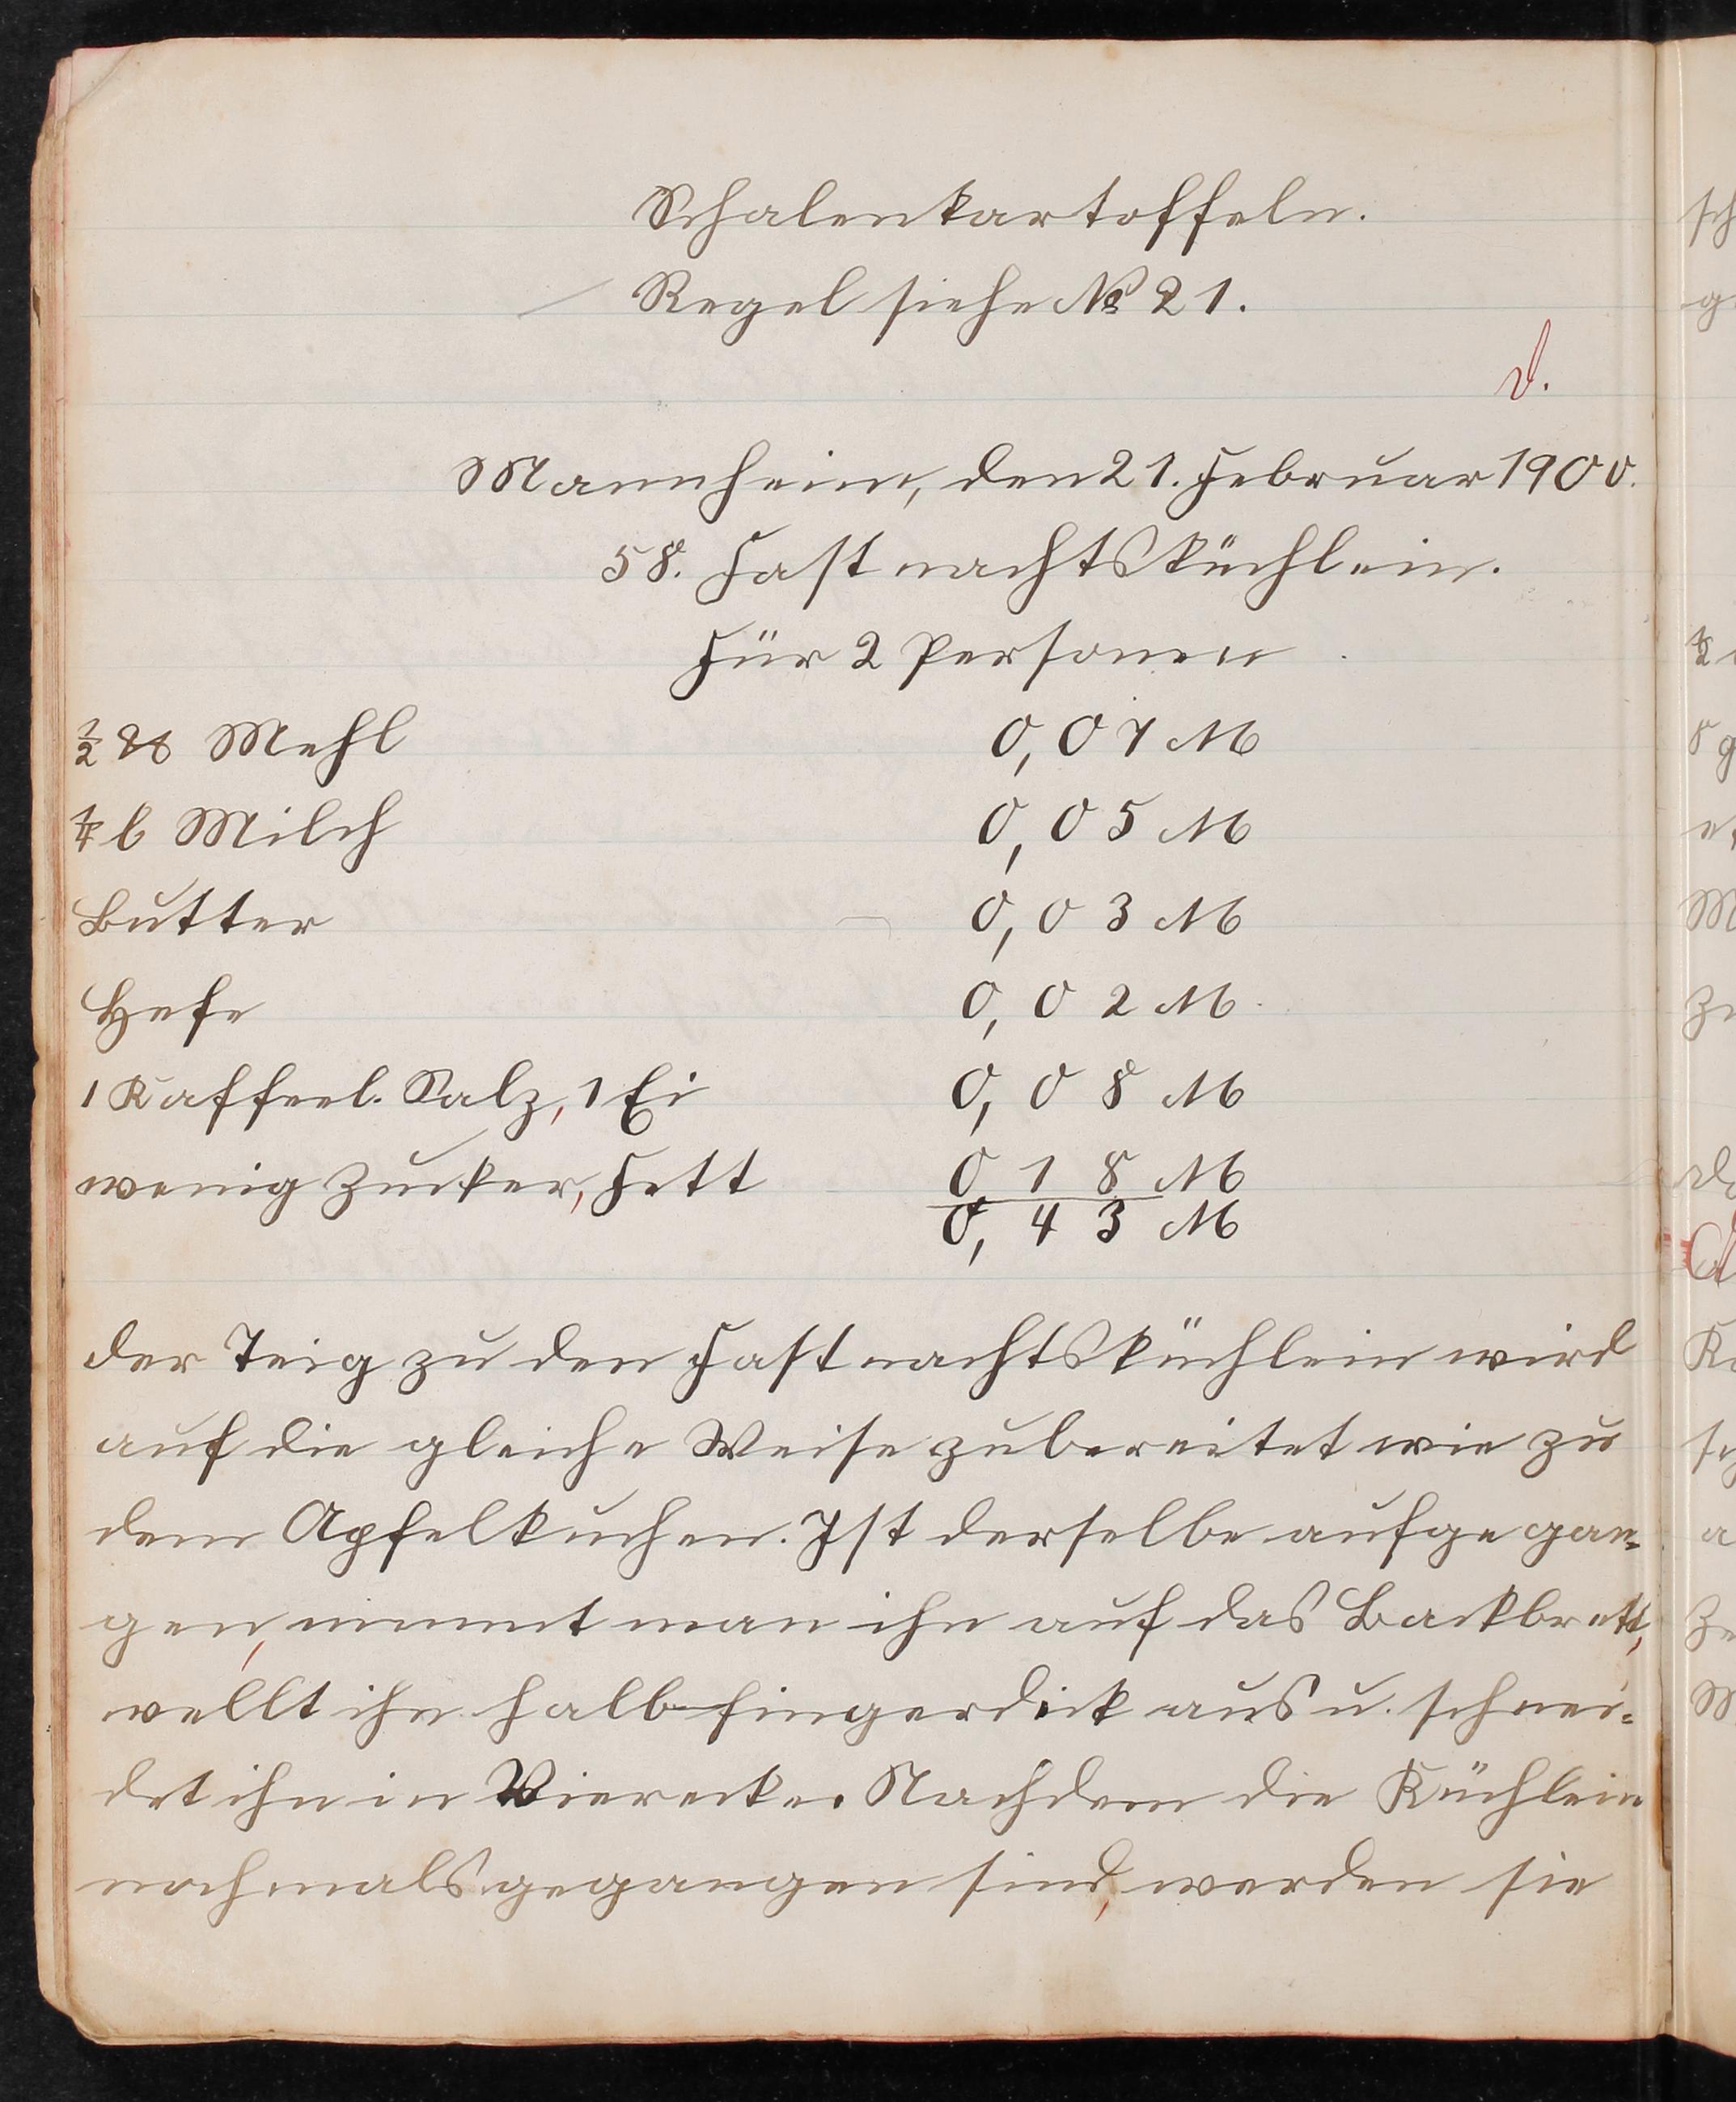 Schalenkartoffeln.
Regel siehe № 21.
d.
Mannheim, den 21. Februar 1900.
58. Fastnachtsküchlein.
Für 2 Personen.
½ ℔ Mehl 0,07 M
¼ l Milch 0,05 M
Butter 0,03 M
Hefe 0,02 M
1 Kaffeel. Salz, 1 Ei 0,08 M
wenig Zucker, Fett 0 18 M
0,43 M
der Teig zu den Fastnachtsküchlein wird
auf die gleiche Weise zubereitet wie zu
dem Apfelkuchen. Ist derselbe aufgegan-
gen, nimmt man ihn auf das Backbrett,
wellt ihn halbfingerdick aus u. schnei-
det ihn in Vierecke. Nachdem die Küchlein
nochmals gegangen sind, werden sie